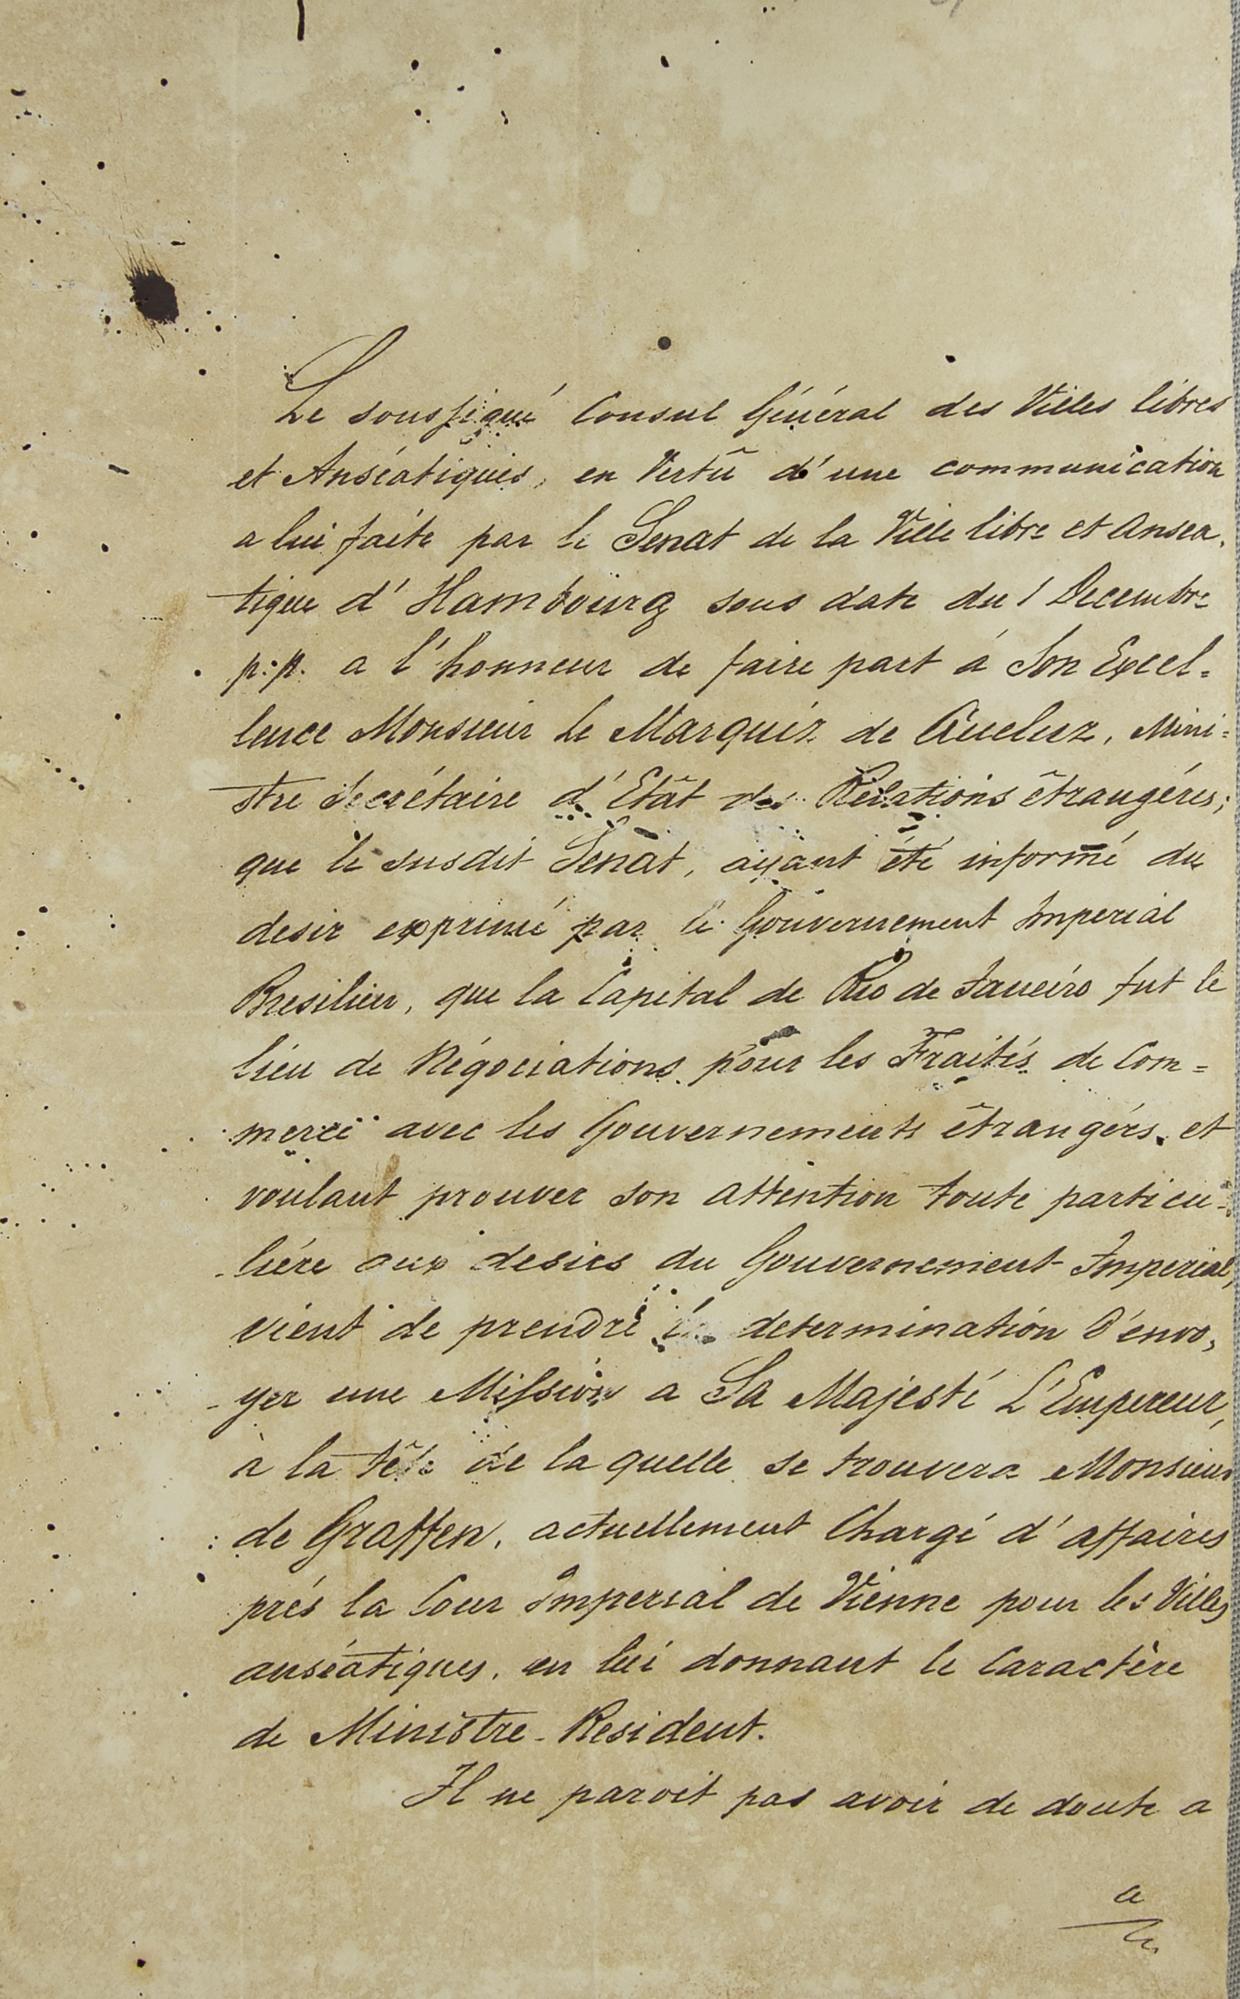 Le soussigné Consul Général des Villes libres
et Anséatiques, en Vertû d'une communication
a lui faite par le Senat de la Ville libre et Ansea-
tique d'Hambourg sous date du 1 Decembre
p.p. a l'honneur de faire part á Son Excel=
lence Monsieur Le Marquiz de Queluz, Mini=
stre Secrétaire d'Etât des Relations êtrangéres;
que le susdit Senat, ayant été informé du
desir exprimé par le Gouvernement Imperial
Bresilien, que la Capital de Rio de Janeíro fut le
lieu de Négociations pour les Traités de Com=
merce avec les Gouvernements êtrangérs, et
voulant prouver son attention toute particu-
liére aux desirs du Gouvernement Imperial,
vient de prendre la determination d'envo-
yer une Mission a Sa Majesté L'Empereur,
à la tête de la quelle se trouvera Monsieur
de Graffen, actuellement Chargé d'affaires
prés la Cour Imperial de Vienne pour les Villes
anséatiques, en lui donnant le Caractère
de Ministre-Resident.
Il ne paroit pas avoir de doute a
a